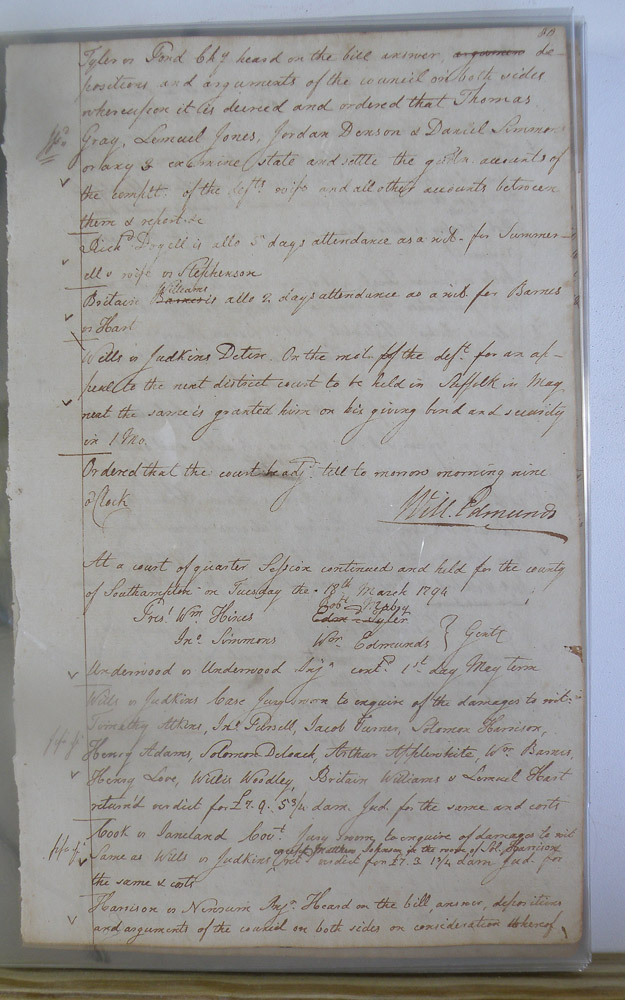 Tyler vs Ford Chy heard on the bill answer de-
positions and arguments of the council on both sides
whereupon it is decreed and ordered that Thomas
Gray, Lemuel Jones, Jordan Denson & Daniel Simmons
or any 3 examine state and settle the accounts of
the complt. of the defts wife and all other accounts between
them & report &c
Richd is allo 5 days attendance as a wit. for Summer-
ell & wife vs Stephenson
Williams
Britain Barnes is allo 2 days attendance as a wit. for Barnes
vs Hart
Wills vs Judkins Detin. On the mot. of the deft. for an ap-
peal to the next district court to be held in Suffolk in May
next the same is granted him on his giving bond and security
in 1 Mo.
Ordered that the court be adj. till to morrow morning nine
o'Clock
Will. Edmunds
At a court of quarter Session continued and held for the county
of Southampton on Tuesday the 18th March 1794
Prest. Wm. Hines
Edm. Tyler
Jno. Simmons Wm. Edmunds } Gent
Underwood vs Underwood Inj. contd. 1st day May term
Wills vs Judkins Case Jury sworn to enquire of the damages to wit:
Timothy Atkins, Jno. Fursell, Jacob Turner, Solomon Harrison,
Henry Adams, Solomon Deloach, Arthur Applewhite, Wm. Barnes,
Henry Love, Willis Woodley, Britain Williams & Lemuel Hart
return'd verdict for £7. 9. 5 3/4 dam. Jud. for the same and costs
Cook vs Janeland Covt. Jury sworn to enquire of damages to wit
except Matthew Johnson in the room of Sol. Harrison
Same as Wills vs Judkins verdict for £7. 3. 1 3/4 dam. Jud. for
the same & costs
Harrison vs Newsum Inj. Heard on the bill, answer, depositions
and arguments of the council on both sides on consideration whereof